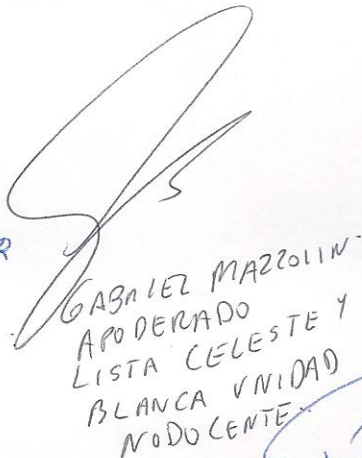 GABRIEL MAZZOLIN.
APODERADO
LISTA CELESTE Y
BLANCA UNIDAD
NODOCENTE.